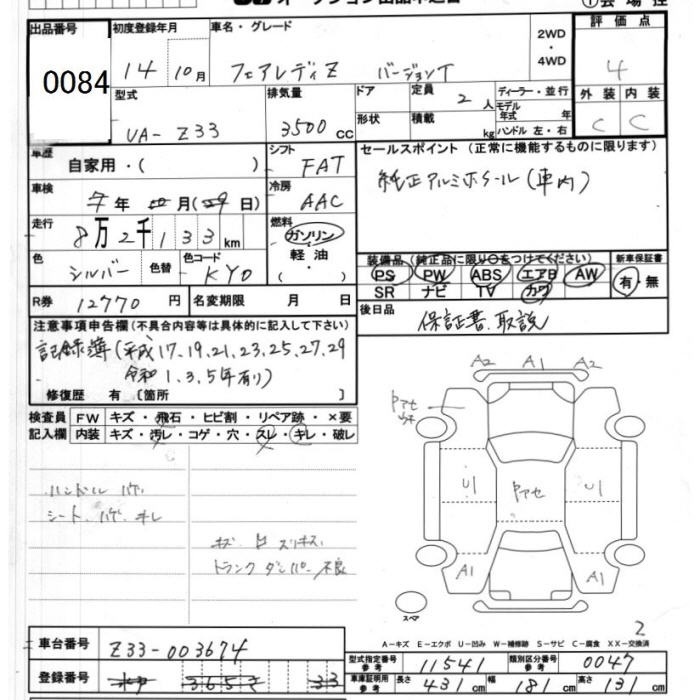 出品番号 初度登録年月 車名・グレード 2WD・4WD 評価点
0084 14年10月 フェアレディZ バージョンT 4
型式 排気量 ドア 形状 定員 2人 積載 kg ディーラー・並行 モデル年式 年 ハンドル 左・右 外装 内装
UA-Z33 3500cc C C
車歴 自家用・( ) シフト FAT セールスポイント(正常に機能するものに限ります)
車検 7年 月(29日) 冷房 AAC 純正アルミホイール(車内)
走行 8万2千133km 燃料 ガソリン・軽油・( )
色 シルバー 色替 色コード KY0
装備品(純正品に限り○をつけてください) 新車保証書
PS PW ABS エアB AW 有・無
SR ナビ TV カワ
R券 12770円 名変期限 月 日 後日品 保証書、取説
注意事項申告欄(不具合内容等は具体的に記入して下さい)
記録簿(平成17.19.21.23.25.27.29
令和1.3.5年有り)
修復歴 有[箇所 ]
検査員記入欄 FW キズ・飛石・ヒビ割・リペア跡・×要
内装 キズ・汚レ・コゲ・穴・スレ・キレ・破レ
ハンドル ハゲ
シート、ハゲ、キレ
キズ スリキズ
トランクダンパー不良
A2 A1 A2
アセ
U1 アセ U1
A1 A1
スペア
2
A-キズ E-エクボ U-凹み W-補修跡 S-サビ C-腐食 XX-交換済
車台番号 Z33-003674
型式指定番号 参考 11541 類別区分番号 参考 0047
登録番号 33
車庫証明用 参考 長さ 431cm 幅 181cm 高さ 131cm